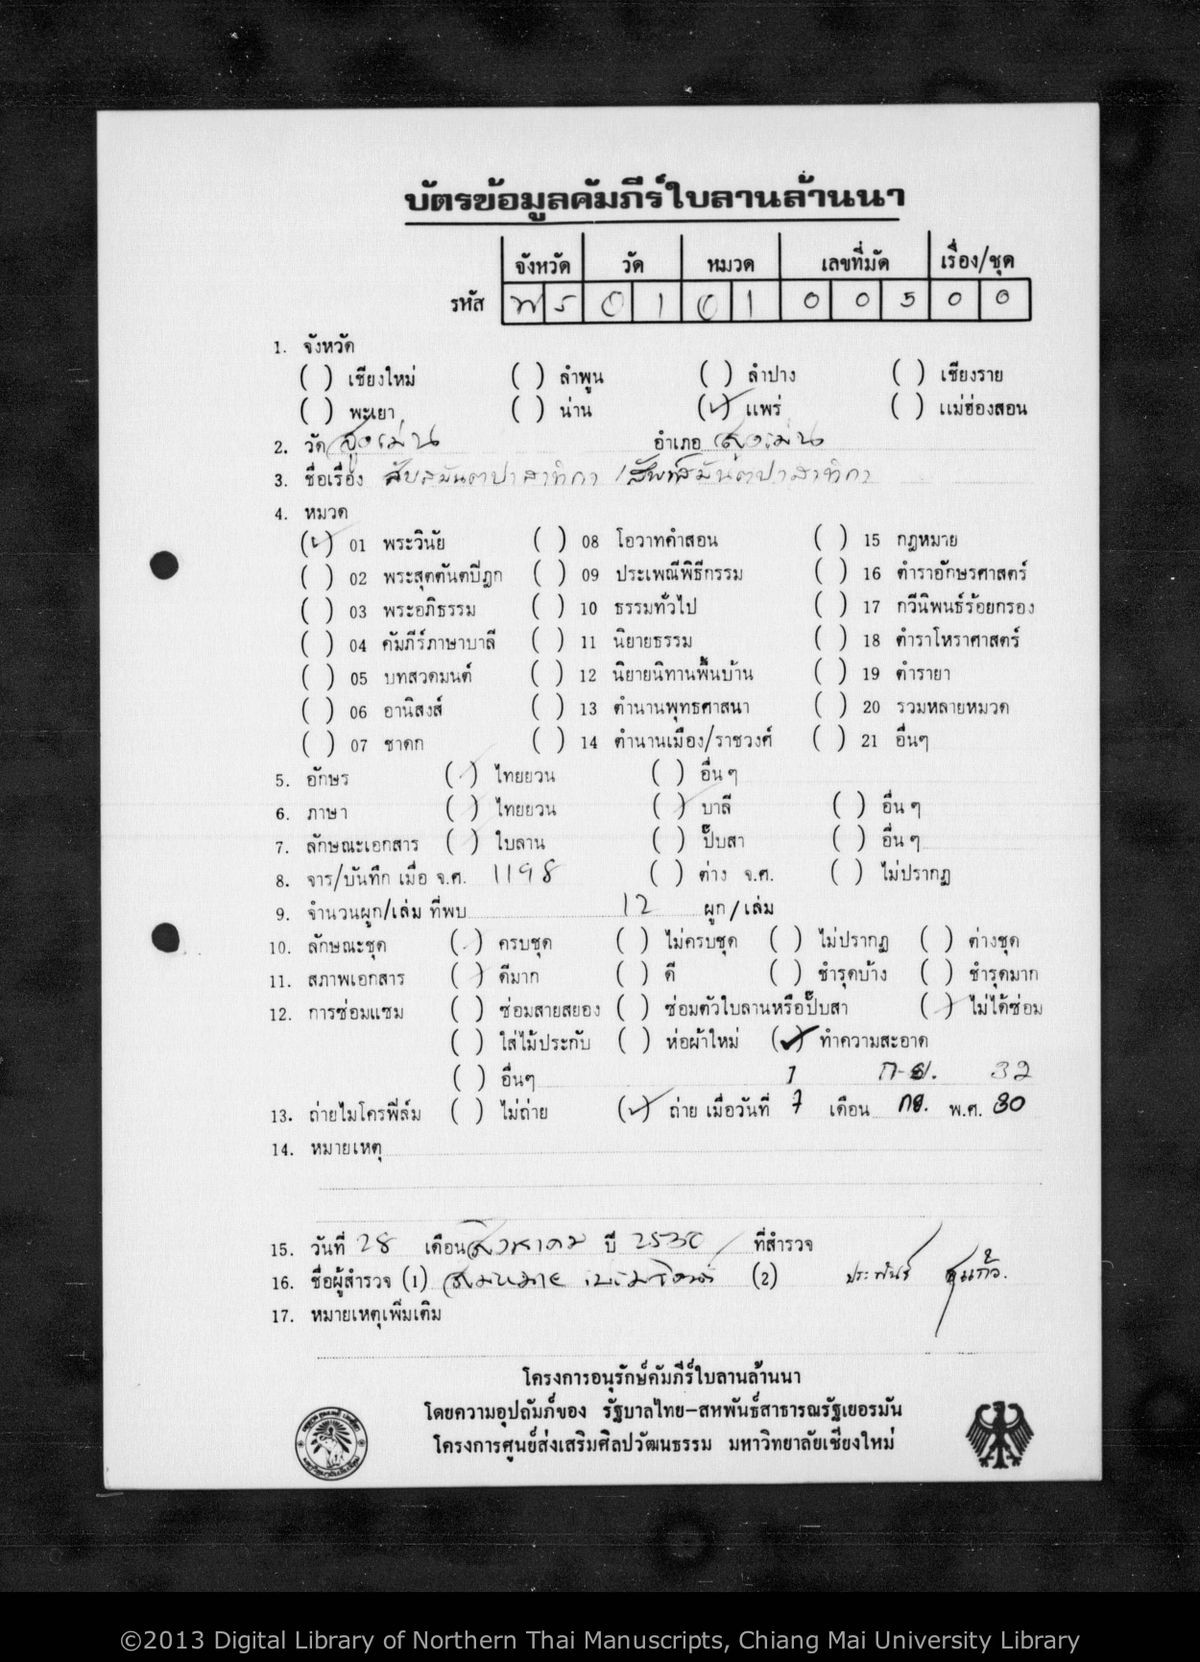 บัตรข้อมูลคัมภีร์ใบลานล้านนา
จังหวัด วัด หมวด เลขที่มัด เรื่อง/ชุด
รหัส พ ร 0 1 0 1 0 0 5 0 0
1. จังหวัด
( ) เชียงใหม่ ( ) ลำพูน ( ) ลำปาง ( ) เชียงราย
( ) พะเยา ( ) น่าน (✓) แพร่ ( ) แม่ฮ่องสอน
2. วัด สูงเม่น อำเภอ สูงเม่น
3. ชื่อเรื่อง สับสมันตปาสาทิกา / ศัพท์สมันตปาสาทิกา
4. หมวด
(✓) 01 พระวินัย ( ) 08 โอวาทคำสอน ( ) 15 กฎหมาย
( ) 02 พระสุตตันตปิฎก ( ) 09 ประเพณีพิธีกรรม ( ) 16 ตำราอักษรศาสตร์
( ) 03 พระอภิธรรม ( ) 10 ธรรมทั่วไป ( ) 17 กวีนิพนธ์ร้อยกรอง
( ) 04 คัมภีร์ภาษาบาลี ( ) 11 นิยายธรรม ( ) 18 ตำราโหราศาสตร์
( ) 05 บทสวดมนต์ ( ) 12 นิยายนิทานพื้นบ้าน ( ) 19 ตำรายา
( ) 06 อานิสงส์ ( ) 13 ตำนานพุทธศาสนา ( ) 20 รวมหลายหมวด
( ) 07 ชาดก ( ) 14 ตำนานเมือง/ราชวงศ์ ( ) 21 อื่นๆ
5. อักษร (✓) ไทยยวน ( ) อื่น ๆ
6. ภาษา (✓) ไทยยวน (✓) บาลี ( ) อื่น ๆ
7. ลักษณะเอกสาร (✓) ใบลาน ( ) ปั๊บสา ( ) อื่น ๆ
8. จาร/บันทึก เมื่อ จ.ศ. 1198 ( ) ต่าง จ.ศ. ( ) ไม่ปรากฏ
9. จำนวนผูก/เล่ม ที่พบ 12 ผูก / เล่ม
10. ลักษณะชุด (✓) ครบชุด ( ) ไม่ครบชุด ( ) ไม่ปรากฏ ( ) ต่างชุด
11. สภาพเอกสาร (✓) ดีมาก ( ) ดี ( ) ชำรุดบ้าง ( ) ชำรุดมาก
12. การซ่อมแซม ( ) ซ่อมสายสยอง ( ) ซ่อมตัวใบลานหรือปั๊บสา (✓) ไม่ได้ซ่อม
( ) ใส่ไม้ประกับ ( ) ห่อผ้าใหม่ (✓) ทำความสะอาด
( ) อื่นๆ 1 ก.ย. 32
13. ถ่ายไมโครฟิล์ม ( ) ไม่ถ่าย (✓) ถ่าย เมื่อวันที่ 7 เดือน กย. พ.ศ. 30
14. หมายเหตุ
15. วันที่ 28 เดือน สิงหาคม ปี 2530 ที่สำรวจ
16. ชื่อผู้สำรวจ (1) สมหมาย (2) ประพันธ์
17. หมายเหตุเพิ่มเติม
โครงการอนุรักษ์คัมภีร์ใบลานล้านนา
โดยความอุปถัมภ์ของ รัฐบาลไทย-สหพันธ์สาธารณรัฐเยอรมัน
โครงการศูนย์ส่งเสริมศิลปวัฒนธรรม มหาวิทยาลัยเชียงใหม่
©2013 Digital Library of Northern Thai Manuscripts, Chiang Mai University Library